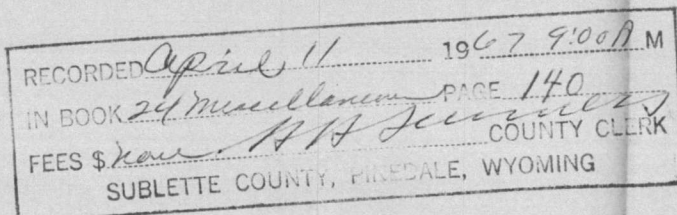 RECORDED April 11 1967 9:00 A M
IN BOOK 24 Miscellaneous PAGE 140
FEES $ none. H H Summers COUNTY CLERK
SUBLETTE COUNTY, PINEDALE, WYOMING